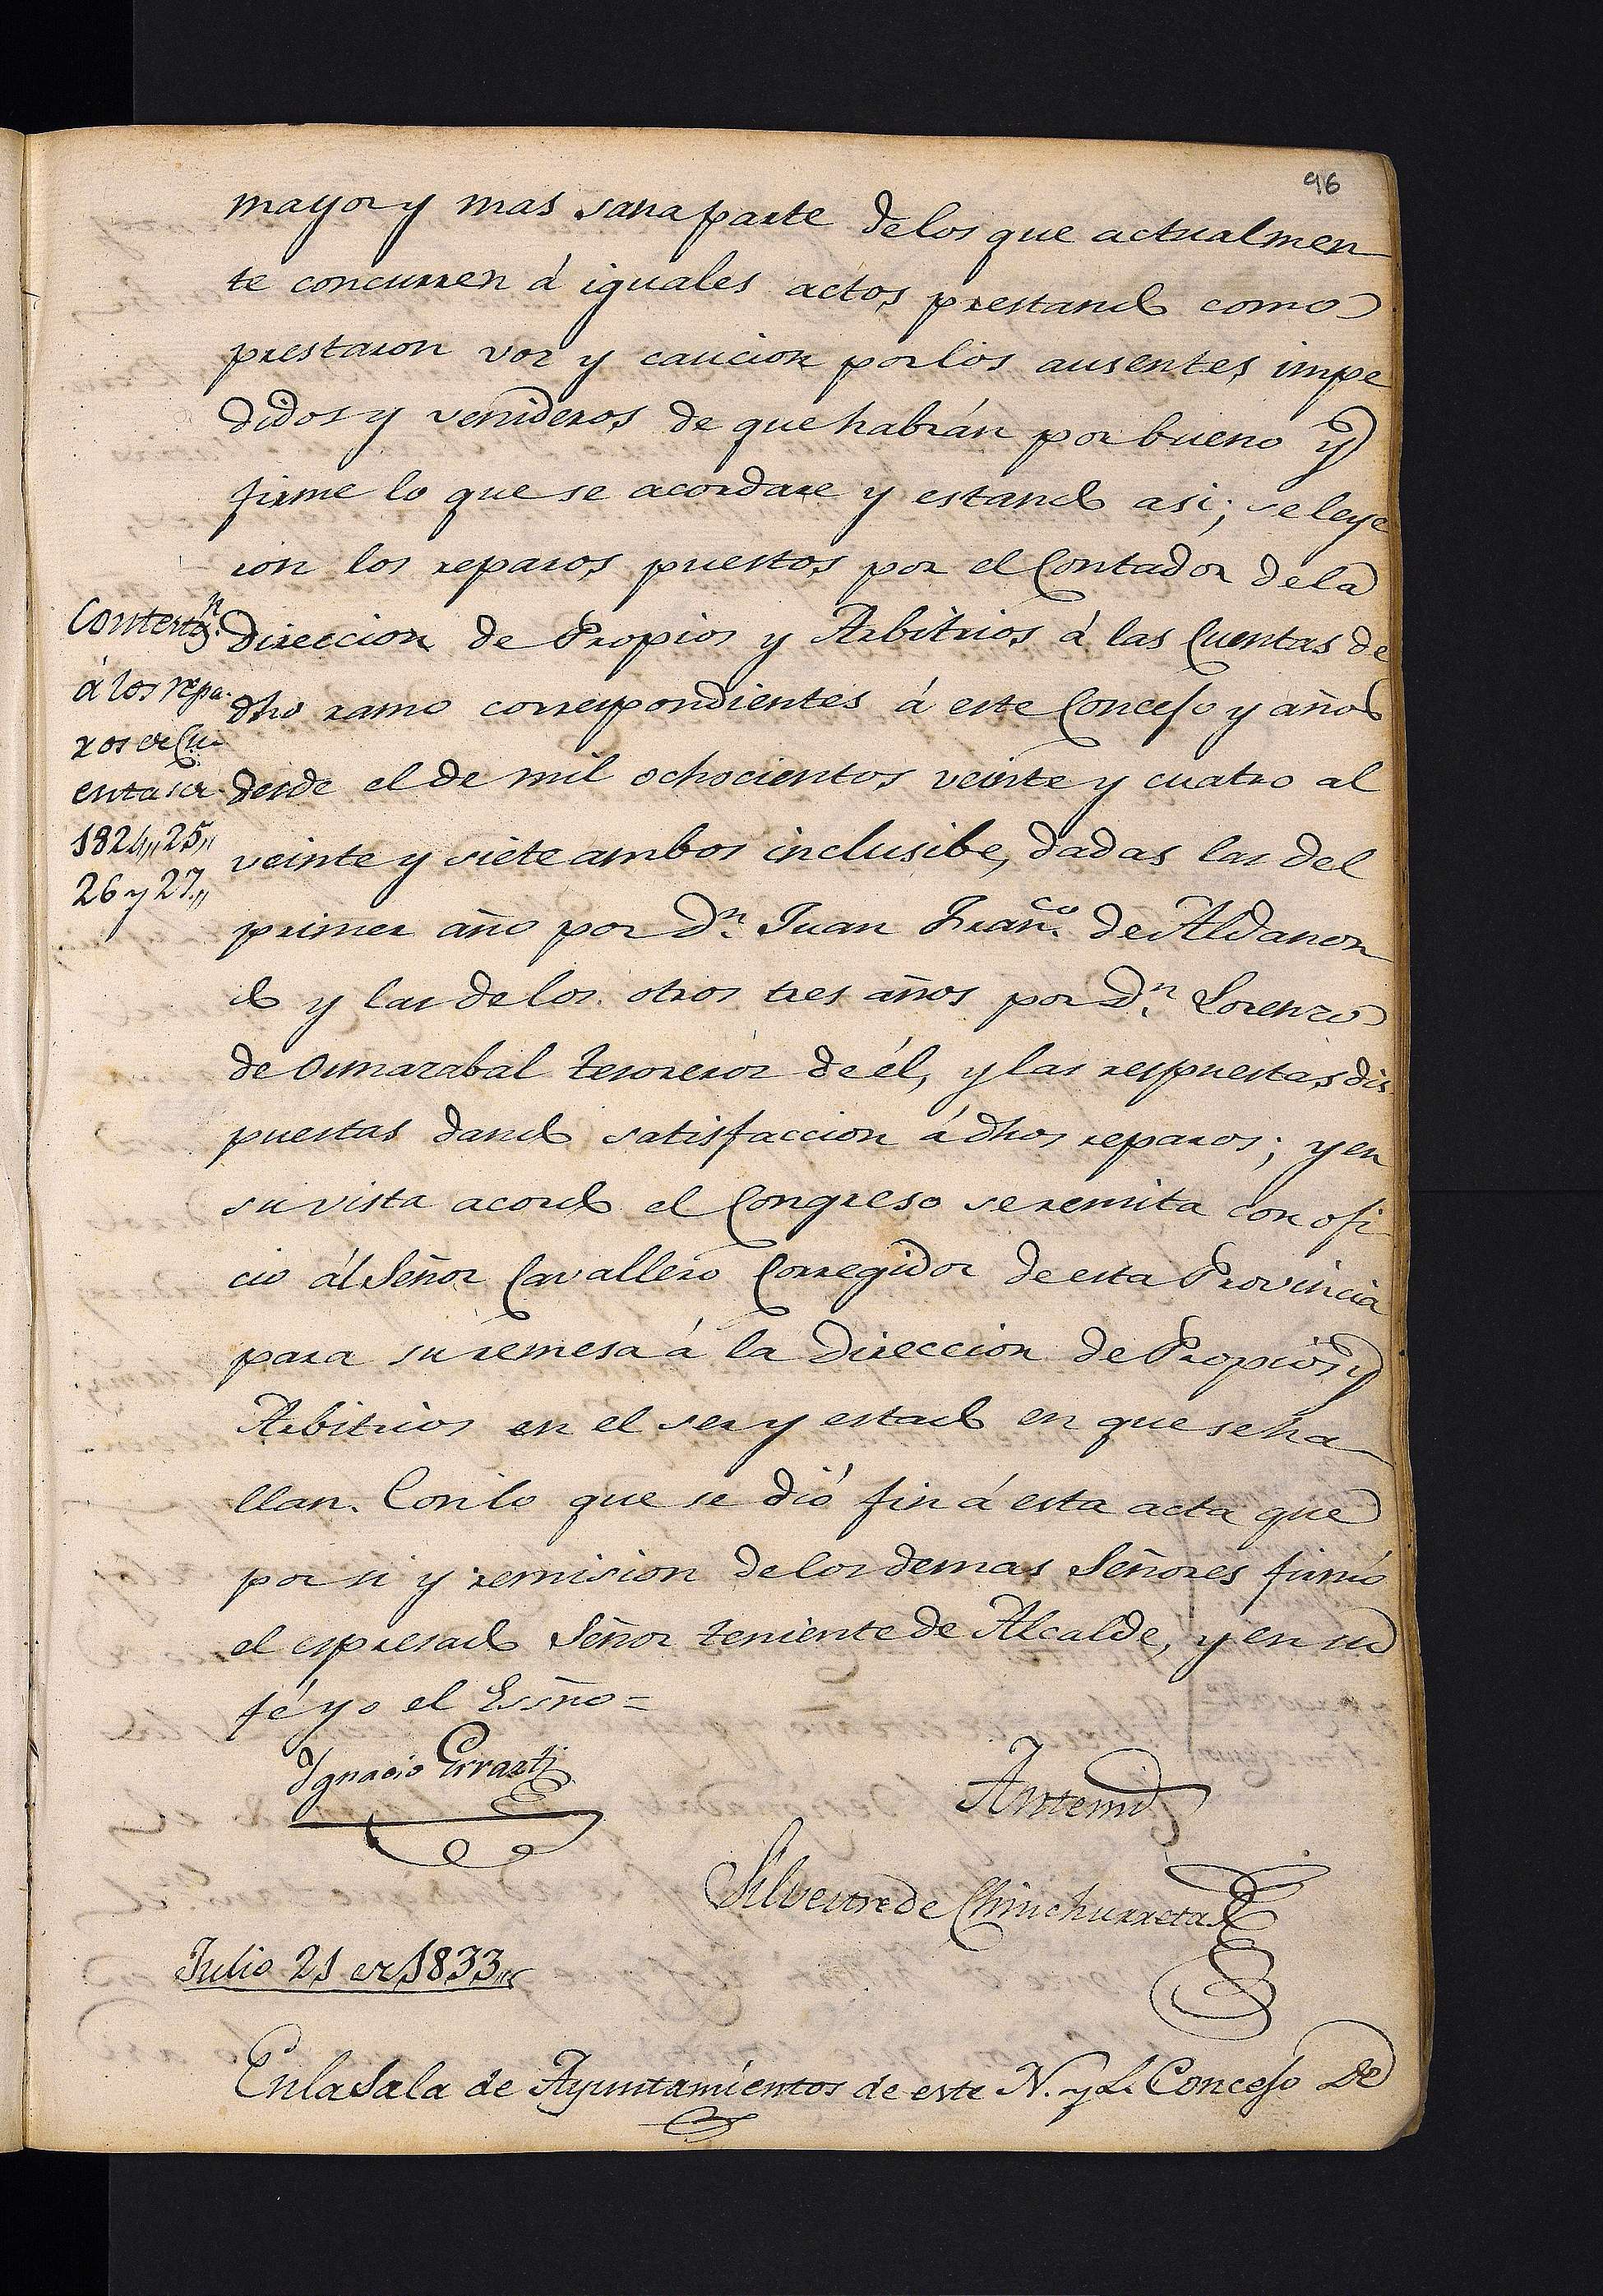 96
mayor y mas sana parte de los que actualmen
te concurren á iguales actos prestando como
prestaron voz y caucion por los ausentes, impe
didos y venideros de que habrán por bueno y
firme lo que se acordare y estando asi; se leye
ron los reparos puestos por el Contador de la
direccion de Propios y Arbitrios á las Cuentas de
dho ramo correspondientes á este Concejo y años
desde el de mil ochocientos veinte y cuatro al
veinte y siete ambos inclusibe, dadas las del
primer año por Dn. Juan Franco. de Aldanon
do y las de los otros tres años por Dn. Lorenzo
de Osmarabal tesoreror de él, y las respuestas dis
puestas dando satisfaccion á dhos reparos; y en
su vista acordó el Congreso se remita con ofi
cio ál Señor Cavallero Corregidor de esta Provincia
para su remesa á la Direccion de Propios y
Arbitrios en el ser y estado en que se ha
llan. Con lo que se dió fin á esta acta que
por si y remision de los demas Señores firmó
el espresado Señor teniente de Alcalde, y en su
fé yo el Essno=
Contestn.
á los repa-
ros de Cu-
entas de
1824,, 25,,
26 y 27,,
Ignacio Errazti
Antemi
Silvestre de Chinchurreta
Julio 21 de 1833,,
En la Sala de Ayuntamientos de este N. y L. Concejo de